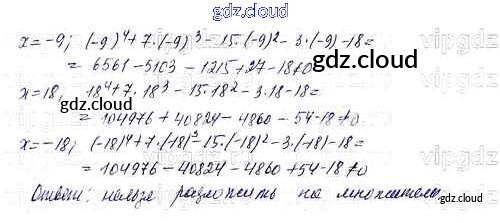 gdz.cloud
x=-9; (-9)⁴+7·(-9)³-15·(-9)²-3·(-9)-18=
= 6561-5103-1215+27-18≠0
x=18, 18⁴+7·18³-15·18²-3·18-18=
= 104976+40824-4860-54-18≠0
x=-18; (-18)⁴+7·(-18)³-15·(-18)²-3·(-18)-18=
= 104976-40824-4860+54-18≠0
Ответ: нельзя разложить на множители.
gdz.cloud